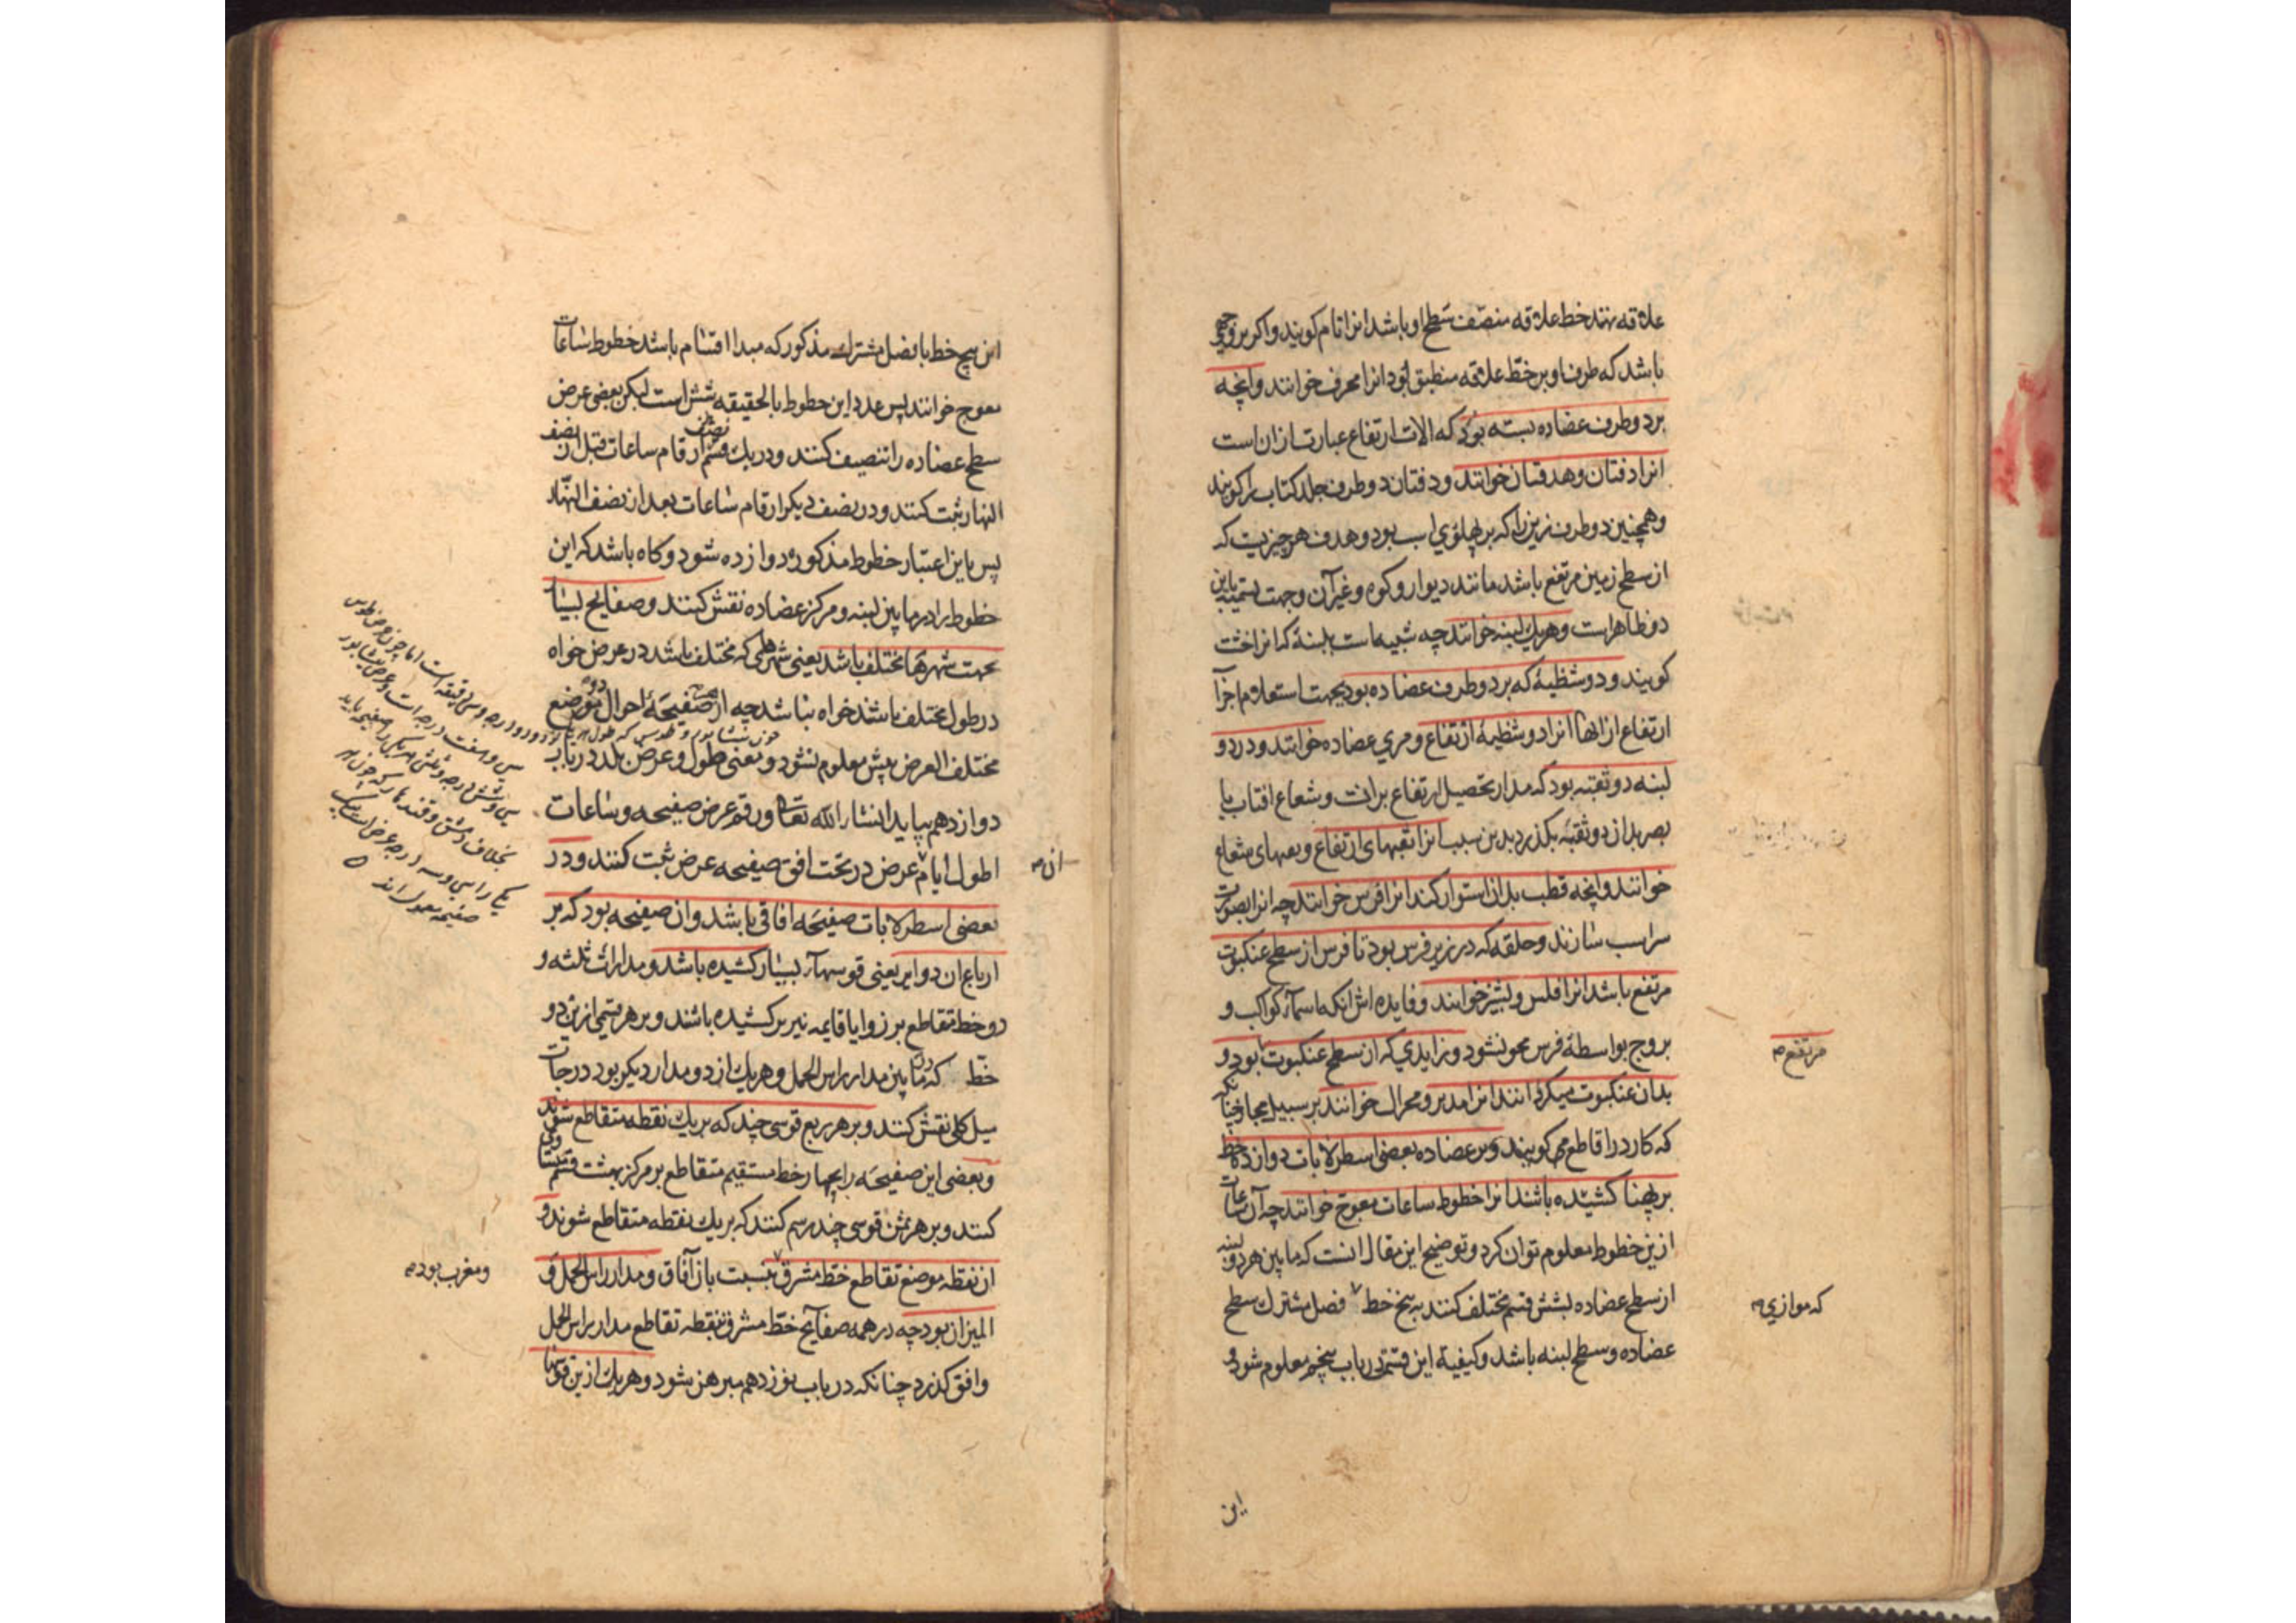 علاقه نهند خط علاقه منصّف سَطح او باشد انرا تام کویند و اکر بروجهی
باشد که طرف او بر خطّ علاقه منطبق بود انرا محرف خوانند وانچه
بر دو طرف عضاده بسته بود که الات ارتفاع عبارت از ان است
انرا دفتان و هدفتان خوانند و دفتان دو طرف جلد کتاب را کویند
و همچنین دو طرف زین را که بر پهلوی اسب بود و هدف هر چیزیت که
از سطح زمین مرتفع باشد مانند دیوار و کوه و غیر آن وجهت تسمیه باین
دو ظاهر است و هریک را لبنه خوانند چه شبیه است بلبنهٔ که انرا خشت
کویند و دو شظیهٔ که بر دو طرف عضاده بود بجهت استعلام اجزآ
ارتفاع از انها انرا دو شظیهٔ ارتفاع و مری عضاده خوانند و در دو
لبنه دو ثقبه بود که مدار تحصیل ارتفاع برانست و شعاع افتاب یا
بصر بد از دو ثقبه بکذرد بدین سبب انرا ثقبهای ارتفاع و ثقبهای شعاع
خوانند وانچه قطب بدان استوار کند انرا فرس خوانند چه انرا بصورت
سر اسب سازند و حلقه که در زیر فرس بود تا فرس از سطح عنکبوت
مرتفع باشد انرا فلس و پشیز خوانند و فایده اش انکه تا اسمآء کواکب و
بروج بواسطهٔ فرس محو نشود و زایدی که از سطح عنکبوت بود و
مرتفع
بدان عنکبوت میکردانند انرا مدیر و محرک خوانند بر سبیل مجاز چنانکه
که کارد را قاطع می کویند و بر عضاده بعضی اسطرلابات دوازده خط
بر پهنا کشیده باشند انرا خطوط ساعات معوج خوانند چه آن ساعات
ازین خطوط معلوم توان کرد و توضیح این مقال انست که مابین هر دو لبنه
از سطح عضاده بشش قسم مختلف کنند به پنج خط فصل مشترک سطح
که موازی
عضاده و سطح لبنه باشد و کیفیة این قسمت در باب پنجم معلوم شود و
این
این پنج خط با فصل مشترک مذکور که مبدا اقسام باشد خطوط ساعات
معوج خوانند پس عدد این خطوط بالحقیقه شش است لیکن بعضی عرض
سطح عضاده را تنصیف کنند و در یک نصف ارقام ساعات قبل از نصف
النهار ثبت کنند و در نصف دیکر ارقام ساعات بعد از نصف النهّار
پس باین اعتبار خطوط مذکوره دوازده شود و کاه باشد که این
خطوط را در مابین لبنه و مرکز عضاده نقش کنند و صفایح بسیار
بجهت شهرها مختلف باشد یعنی شهرهایی که مختلف باشد در عرض خواه
در طول مختلف باشند خواه نباشد چه از صفیحهٔ احوال دو موضع
مختلف العرض پیش معلوم نشود و معنی طول و عرض بلد در باب
دوازدهم بیاید انشاء الله تعالی و رقم عرض صفیحه و ساعات
اطول ایام عرض در تحت افق صفیحه عرض ثبت کنند و در
ان
بعضی اسطرلابات صفیحه افاقی باشد و ان صفیحه بود که بر
ارباع ان دوایر یعنی قوسهآء بسیار کشیده باشد و مدارات ثلثه و
دو خط متقاطع بر زوایا قایمه نیز بر کشیده باشند و بر هر قسمی ازین دو
خط که مابین مدار راس الحمل و هریک از دو مدار دیکر بود درجات
میل کلی نقش کنند و بر هر ربع قوسی چند که بر یک نقطه متقاطع شوند
و بعضی این صفیحه را بچهار خط مستقیم متقاطع بر مرکز بهشت قسم متساوی
کنند و بر هر ثمن قوسی چند رسم کنند که بر یک نقطه متقاطع شوند و
ان نقطه موضع تقاطع خط مشرق بنسبت بان آفاق و مدار راس الحمل و
ومغرب بود
المیزان بود چه در همه صفآیح خطّ مشرق بنقطه تقاطع مدار راس الحمل
وافق کذرد چنانکه در باب نوزدهم مبرهن شود و هریک ازین قوسها